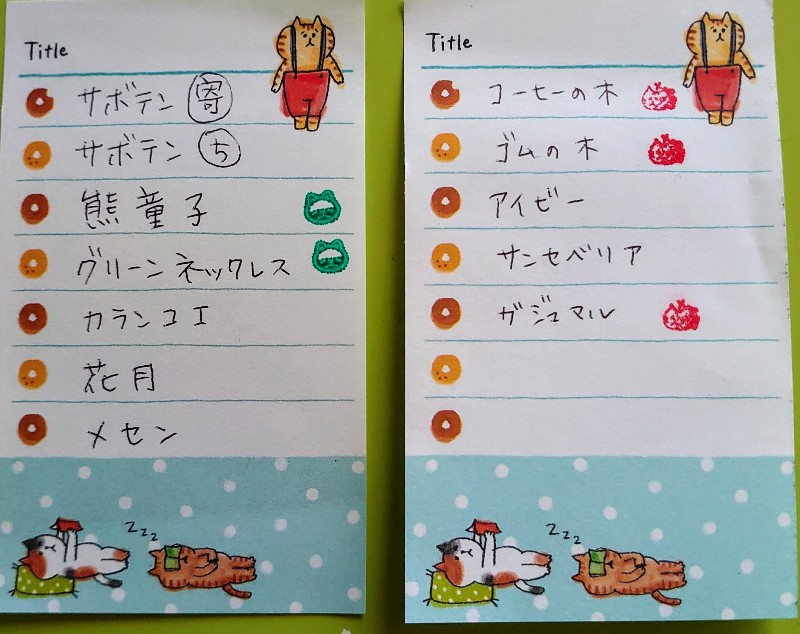 Title
サボテン 寄
サボテン ち
熊童子
グリーンネックレス
カランコエ
花月
メセン
zzz
Title
コーヒーの木
ゴムの木
アイビー
サンセベリア
ガジュマル
zzz